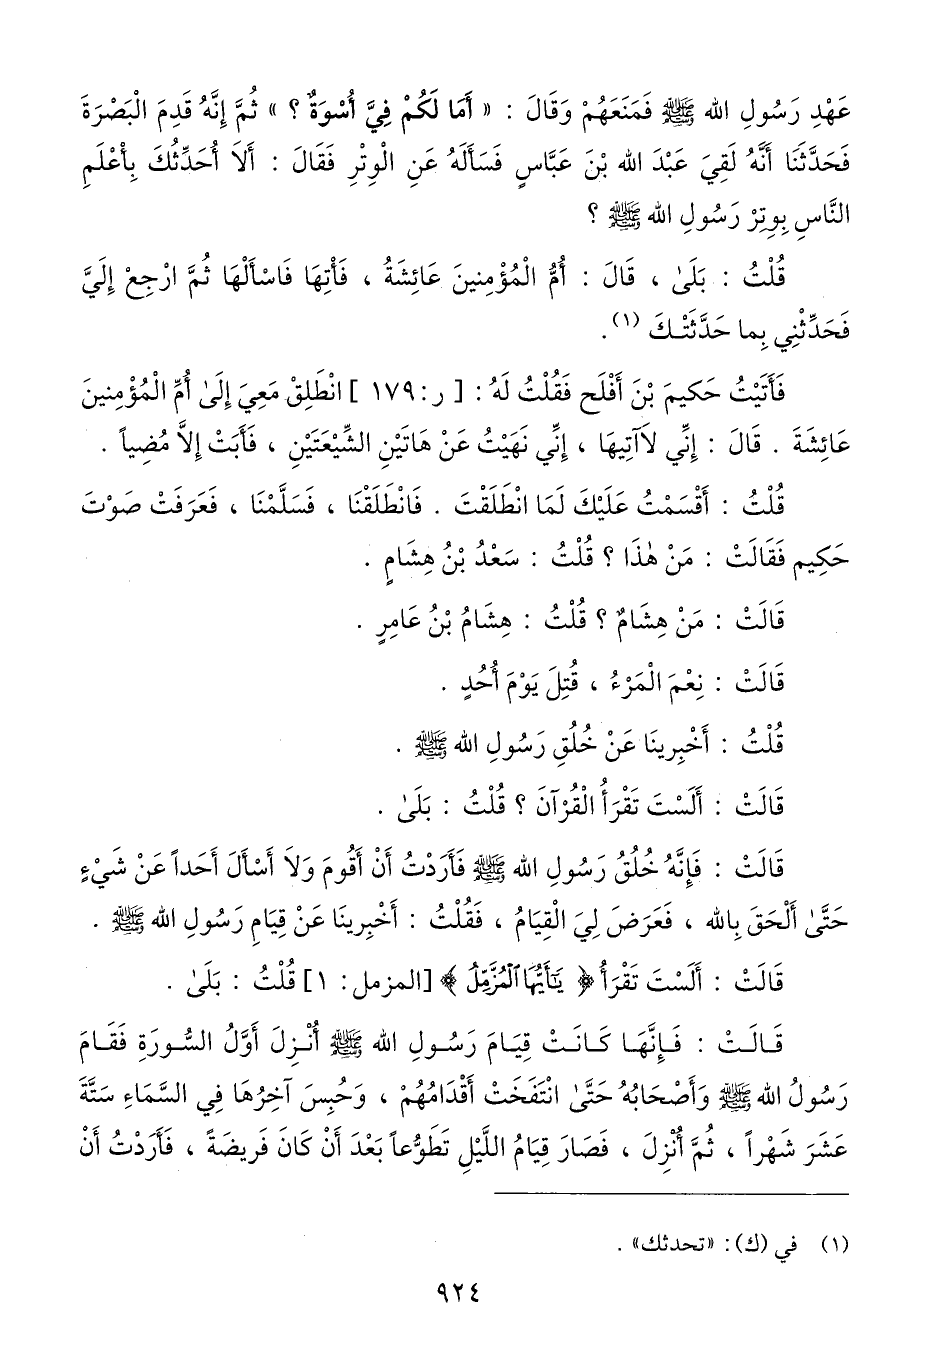 عَهْدِ رَسُولِ الله ﷺ فَمَنَعَهُمْ وَقَالَ : « أَمَا لَكُمْ فِيَّ أُسْوَةٌ ؟ » ثُمَّ إِنَّهُ قَدِمَ الْبَصْرَةَ
فَحَدَّثَنَا أَنَّهُ لَقِيَ عَبْدَ الله بْنَ عَبَّاسٍ فَسَأَلَهُ عَنِ الْوِتْرِ فَقَالَ : أَلاَ أُحَدِّثُكَ بِأَعْلَمِ
النَّاسِ بِوِتِرْ رَسُولِ الله ﷺ ؟
قُلْتُ : بَلَىٰ ، قَالَ : أُمُّ الْمُؤْمِنينَ عَائِشَةُ ، فَأْتِهَا فَاسْأَلْهَا ثُمَّ ارْجِعْ إِلَيَّ
فَحَدِّثْنِي بِما حَدَّثَتْكَ (١).
فَأَتَيْتُ حَكيمَ بْنَ أَفْلَح فَقُلْتُ لَهُ : [ ر : ١٧٩ ] انْطَلِقْ مَعِيَ إِلَىٰ أُمِّ الْمُؤْمِنينَ
عَائِشَةَ . قَالَ : إِنِّي لاَآتِيهَا ، إِنِّي نَهَيْتُ عَنْ هَاتَيْنِ الشِّيْعَتَيْنِ ، فَأَبَتْ إِلاَّ مُضِياً .
قُلْتُ : أَقْسَمْتُ عَلَيْكَ لَمَا انْطَلَقْتَ . فَانْطَلَقْنَا ، فَسَلَّمْنَا ، فَعَرَفَتْ صَوْتَ
حَكِيمٍ فَقَالَتْ : مَنْ هٰذَا ؟ قُلْتُ : سَعْدُ بْنُ هِشَامٍ .
قَالَتْ : مَنْ هِشَامٌ ؟ قُلْتُ : هِشَامُ بْنُ عَامِرٍ .
قَالَتْ : نِعْمَ الْمَرْءُ ، قُتِلَ يَوْمَ أُحُدٍ .
قُلْتُ : أَخْبِرِينَا عَنْ خُلُقِ رَسُولِ الله ﷺ .
قَالَتْ : أَلَسْتَ تَقْرَأُ الْقُرْآنَ ؟ قُلْتُ : بَلَىٰ .
قَالَتْ : فَإِنَّهُ خُلُقُ رَسُولِ الله ﷺ فَأَرَدْتُ أَنْ أَقُومَ وَلاَ أَسْأَلَ أَحَداً عَنْ شَيْءٍ
حَتَّىٰ أَلْحَقَ بِالله ، فَعَرَضَ لِيَ الْقِيَامُ ، فَقُلْتُ : أَخْبِرِينَا عَنْ قِيَامِ رَسُولِ الله ﷺ .
قَالَتْ : أَلَسْتَ تَقْرَأُ ﴿ يَٰٓأَيُّهَا ٱلْمُزَّمِّلُ ﴾ [المزمل: ١] قُلْتُ : بَلَىٰ .
قَالَتْ : فَإِنَّهَا كَانَتْ قِيَامَ رَسُولِ الله ﷺ أُنْزِلَ أَوَّلُ السُّورَةِ فَقَامَ
رَسُولُ الله ﷺ وَأَصْحَابُهُ حَتَّىٰ انْتَفَخَتْ أَقْدَامُهُمْ ، وَحُبِسَ آخِرُهَا فِي السَّمَاءِ سَتَّةَ
عَشَرَ شَهْراً ، ثُمَّ أُنْزِلَ ، فَصَارَ قِيَامُ اللَّيْلِ تَطَوُّعاً بَعْدَ أَنْ كَانَ فَرِيضَةً ، فَأَرَدْتُ أَنْ
(١) في (ك): «تحدثك» .
٩٢٤